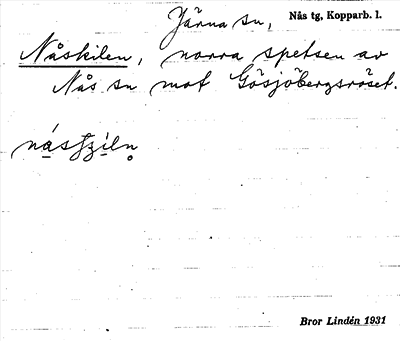 Järna sn, Nås tg, Kopparb. l.
Nåskilen, norra spetsen av
Nås sn mot Gösjöbergsröset.
Bror Lindén 1931